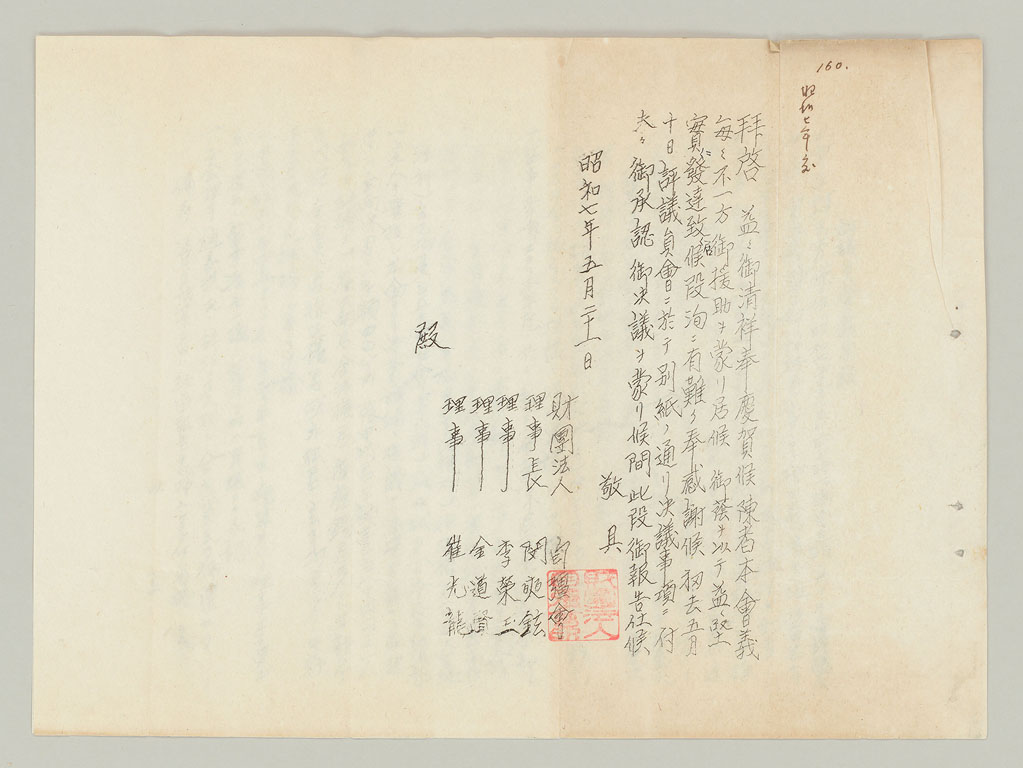 160.
昭和七年度
拝啓 益々御清祥奉慶賀候陳者本會義
毎々不一方御援助ヲ蒙リ居候 御蔭ヲ以テ益々堅
實ニ發達致候段洵ニ有難ク奉感謝候 扨去五月
十日評議員會ニ於テ別紙ノ通リ決議事項ニ付
夫々御承認御決議ヲ蒙リ候間此段御報告仕候
敬具
昭和七年五月二十一日
財團法人 白揚會
理事長 閔奭鉉
理事 李榮玉
理事 金道賢
理事 崔光龍
殿